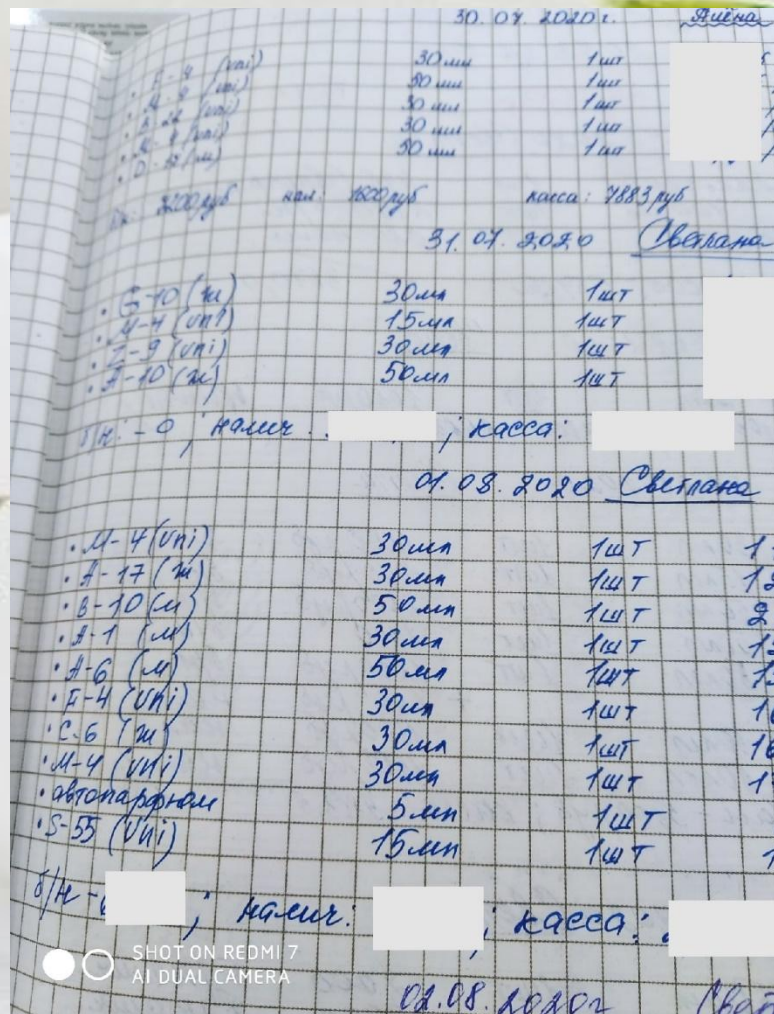 30.07.2020г. Алёна
(uni) 30мл 1шт
(uni) 30мл 1шт
(uni) 30мл 1шт
(uni) 30мл 1шт
(м) 50мл 1шт
3200руб нал: 1600руб касса: 7883руб
31.07.2020 Светлана
• -10 (ж) 30мл 1шт
• М-4 (uni) 15мл 1шт
• -9 (uni) 30мл 1шт
• А-10 (ж) 50мл 1шт
б/н: -0; налич: ; касса:
01.08.2020 Светлана
• М-4 (uni) 30мл 1шт
• А-17 (ж) 30мл 1шт
• В-10 (м) 50мл 1шт
• А-1 (м) 30мл 1шт
• А-6 (м) 50мл 1шт
• F-4 (uni) 30мл 1шт
• С-6 (ж) 30мл 1шт
• М-4 (uni) 30мл 1шт
• автопарфюм 5мл 1шт
• S-55 (uni) 15мл 1шт
б/н - ; налич: ; касса:
SHOT ON REDMI 7
AI DUAL CAMERA
02.08.2020г